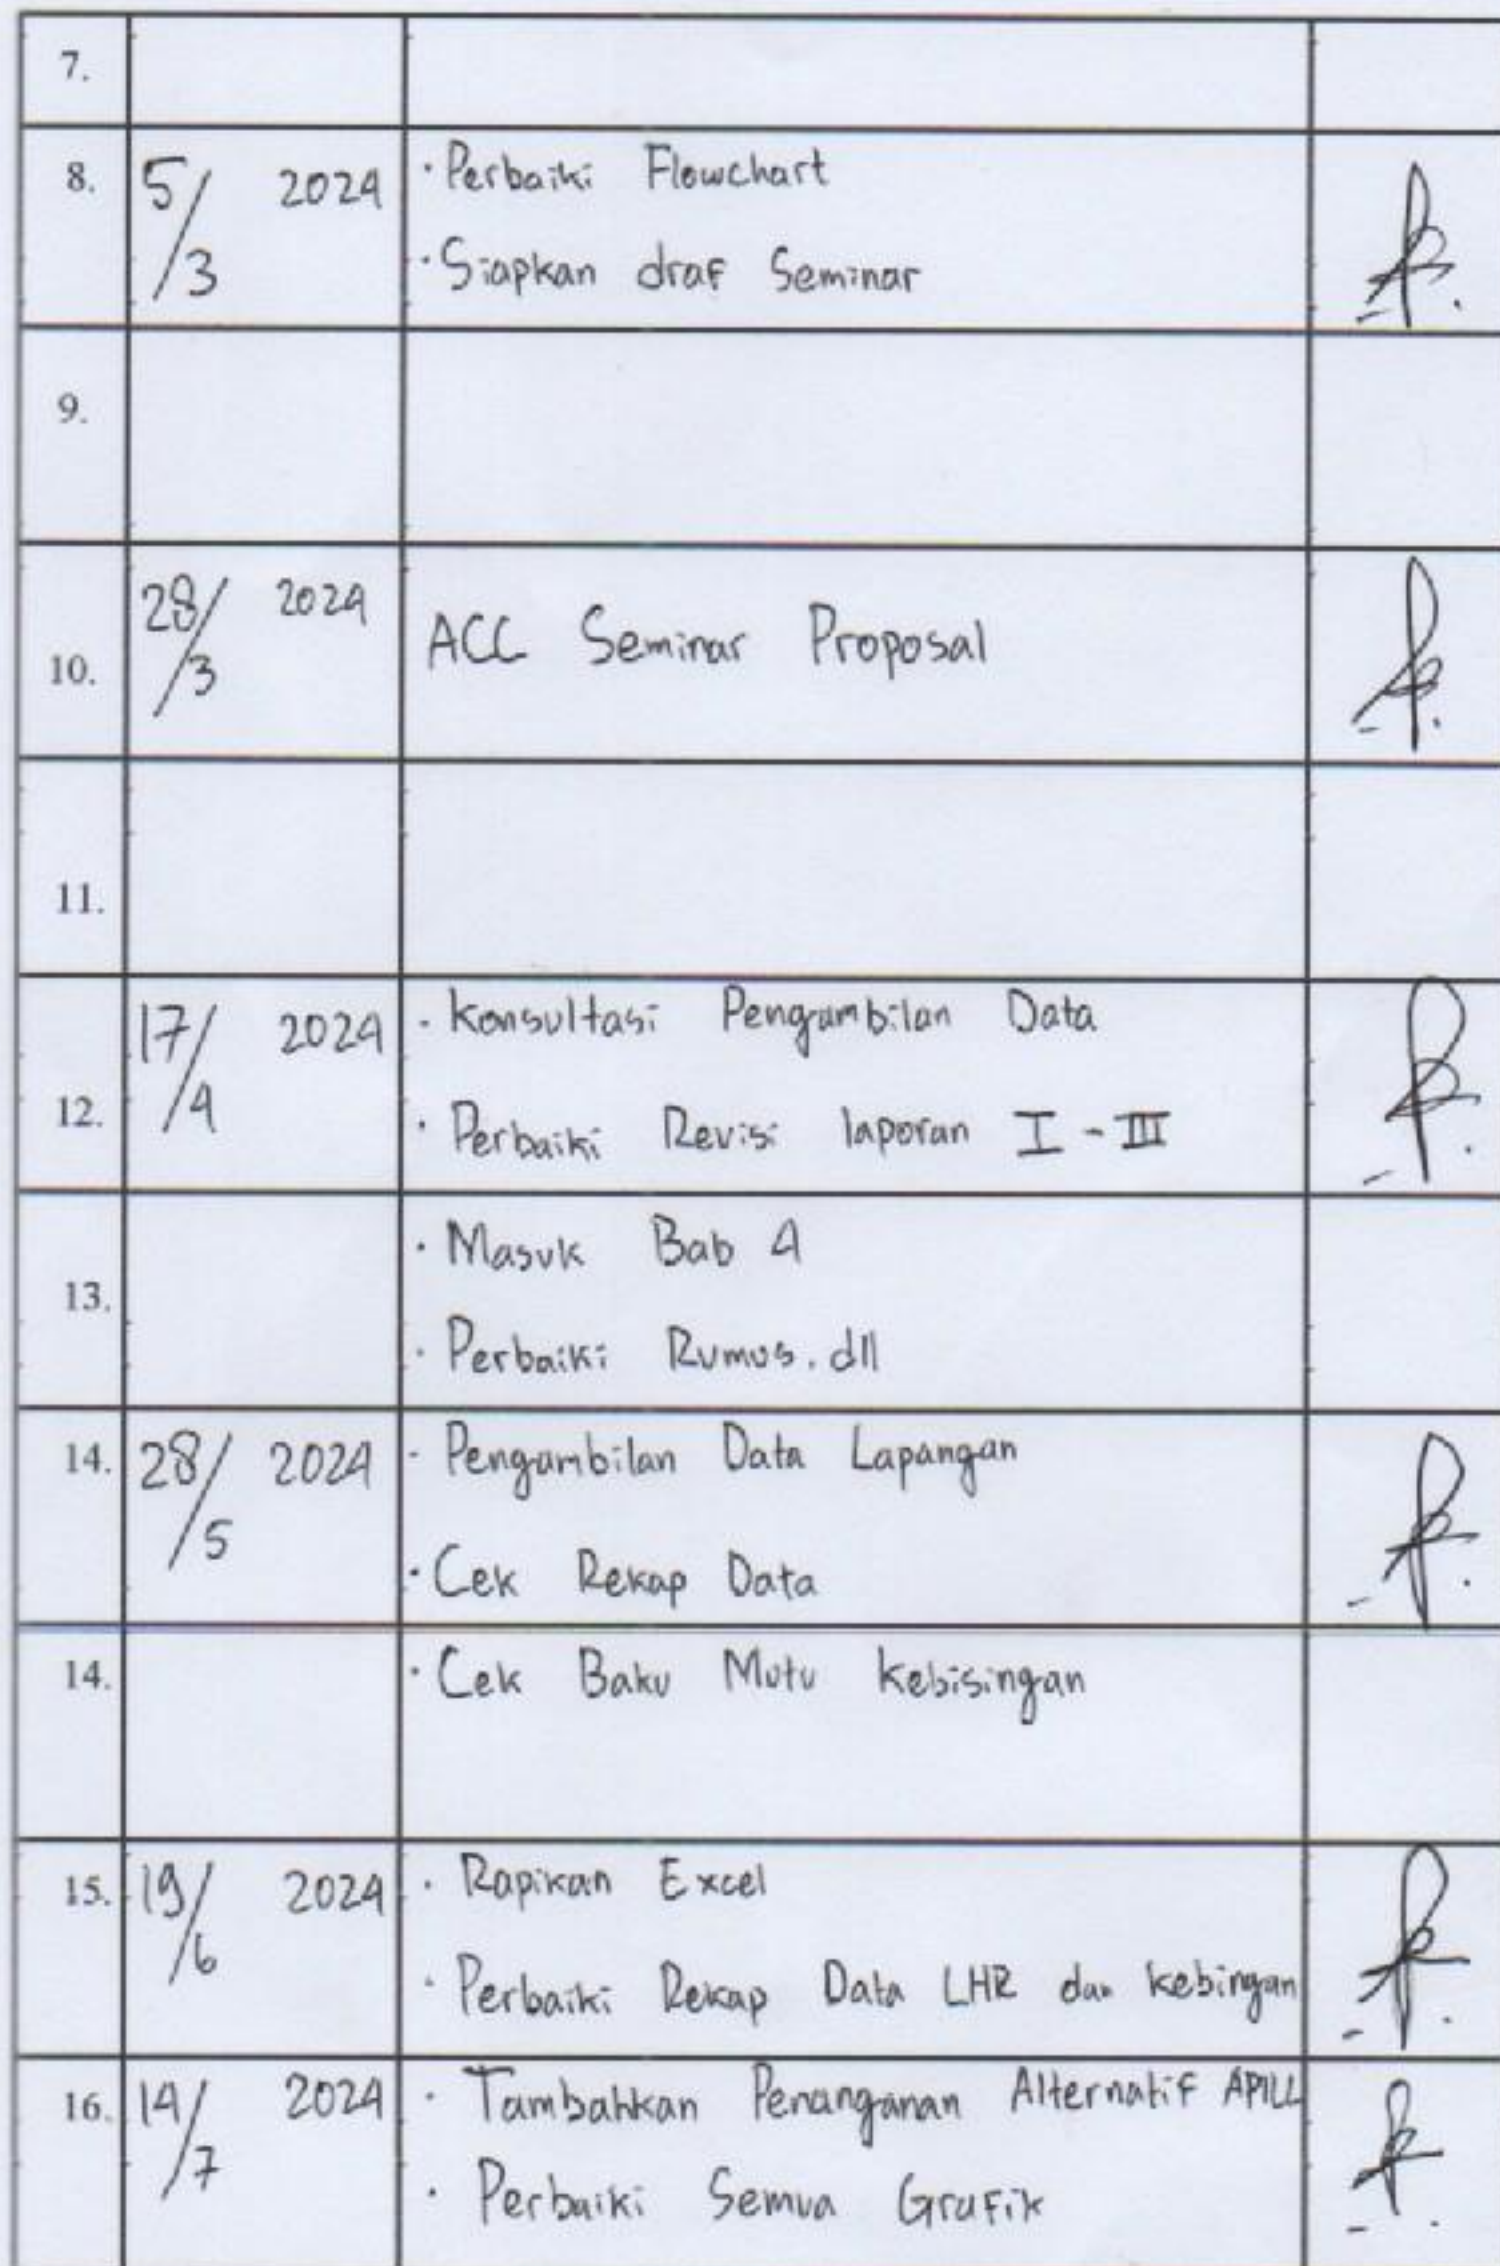 7.
8. 5/3 2024 · Perbaiki Flowchart
· Siapkan draf Seminar
9.
10. 28/3 2024 ACC Seminar Proposal
11.
12. 17/4 2024 · Konsultasi Pengambilan Data
· Perbaiki Revisi laporan I - III
13. · Masuk Bab 4
· Perbaiki Rumus. dll
14. 28/5 2024 · Pengambilan Data Lapangan
· Cek Rekap Data
14. · Cek Baku Mutu Kebisingan
15. 19/6 2024 · Rapikan Excel
· Perbaiki Rekap Data LHR dan kebingan
16. 14/7 2024 · Tambahkan Penanganan Alternatif APILL
· Perbaiki Semua Grafik